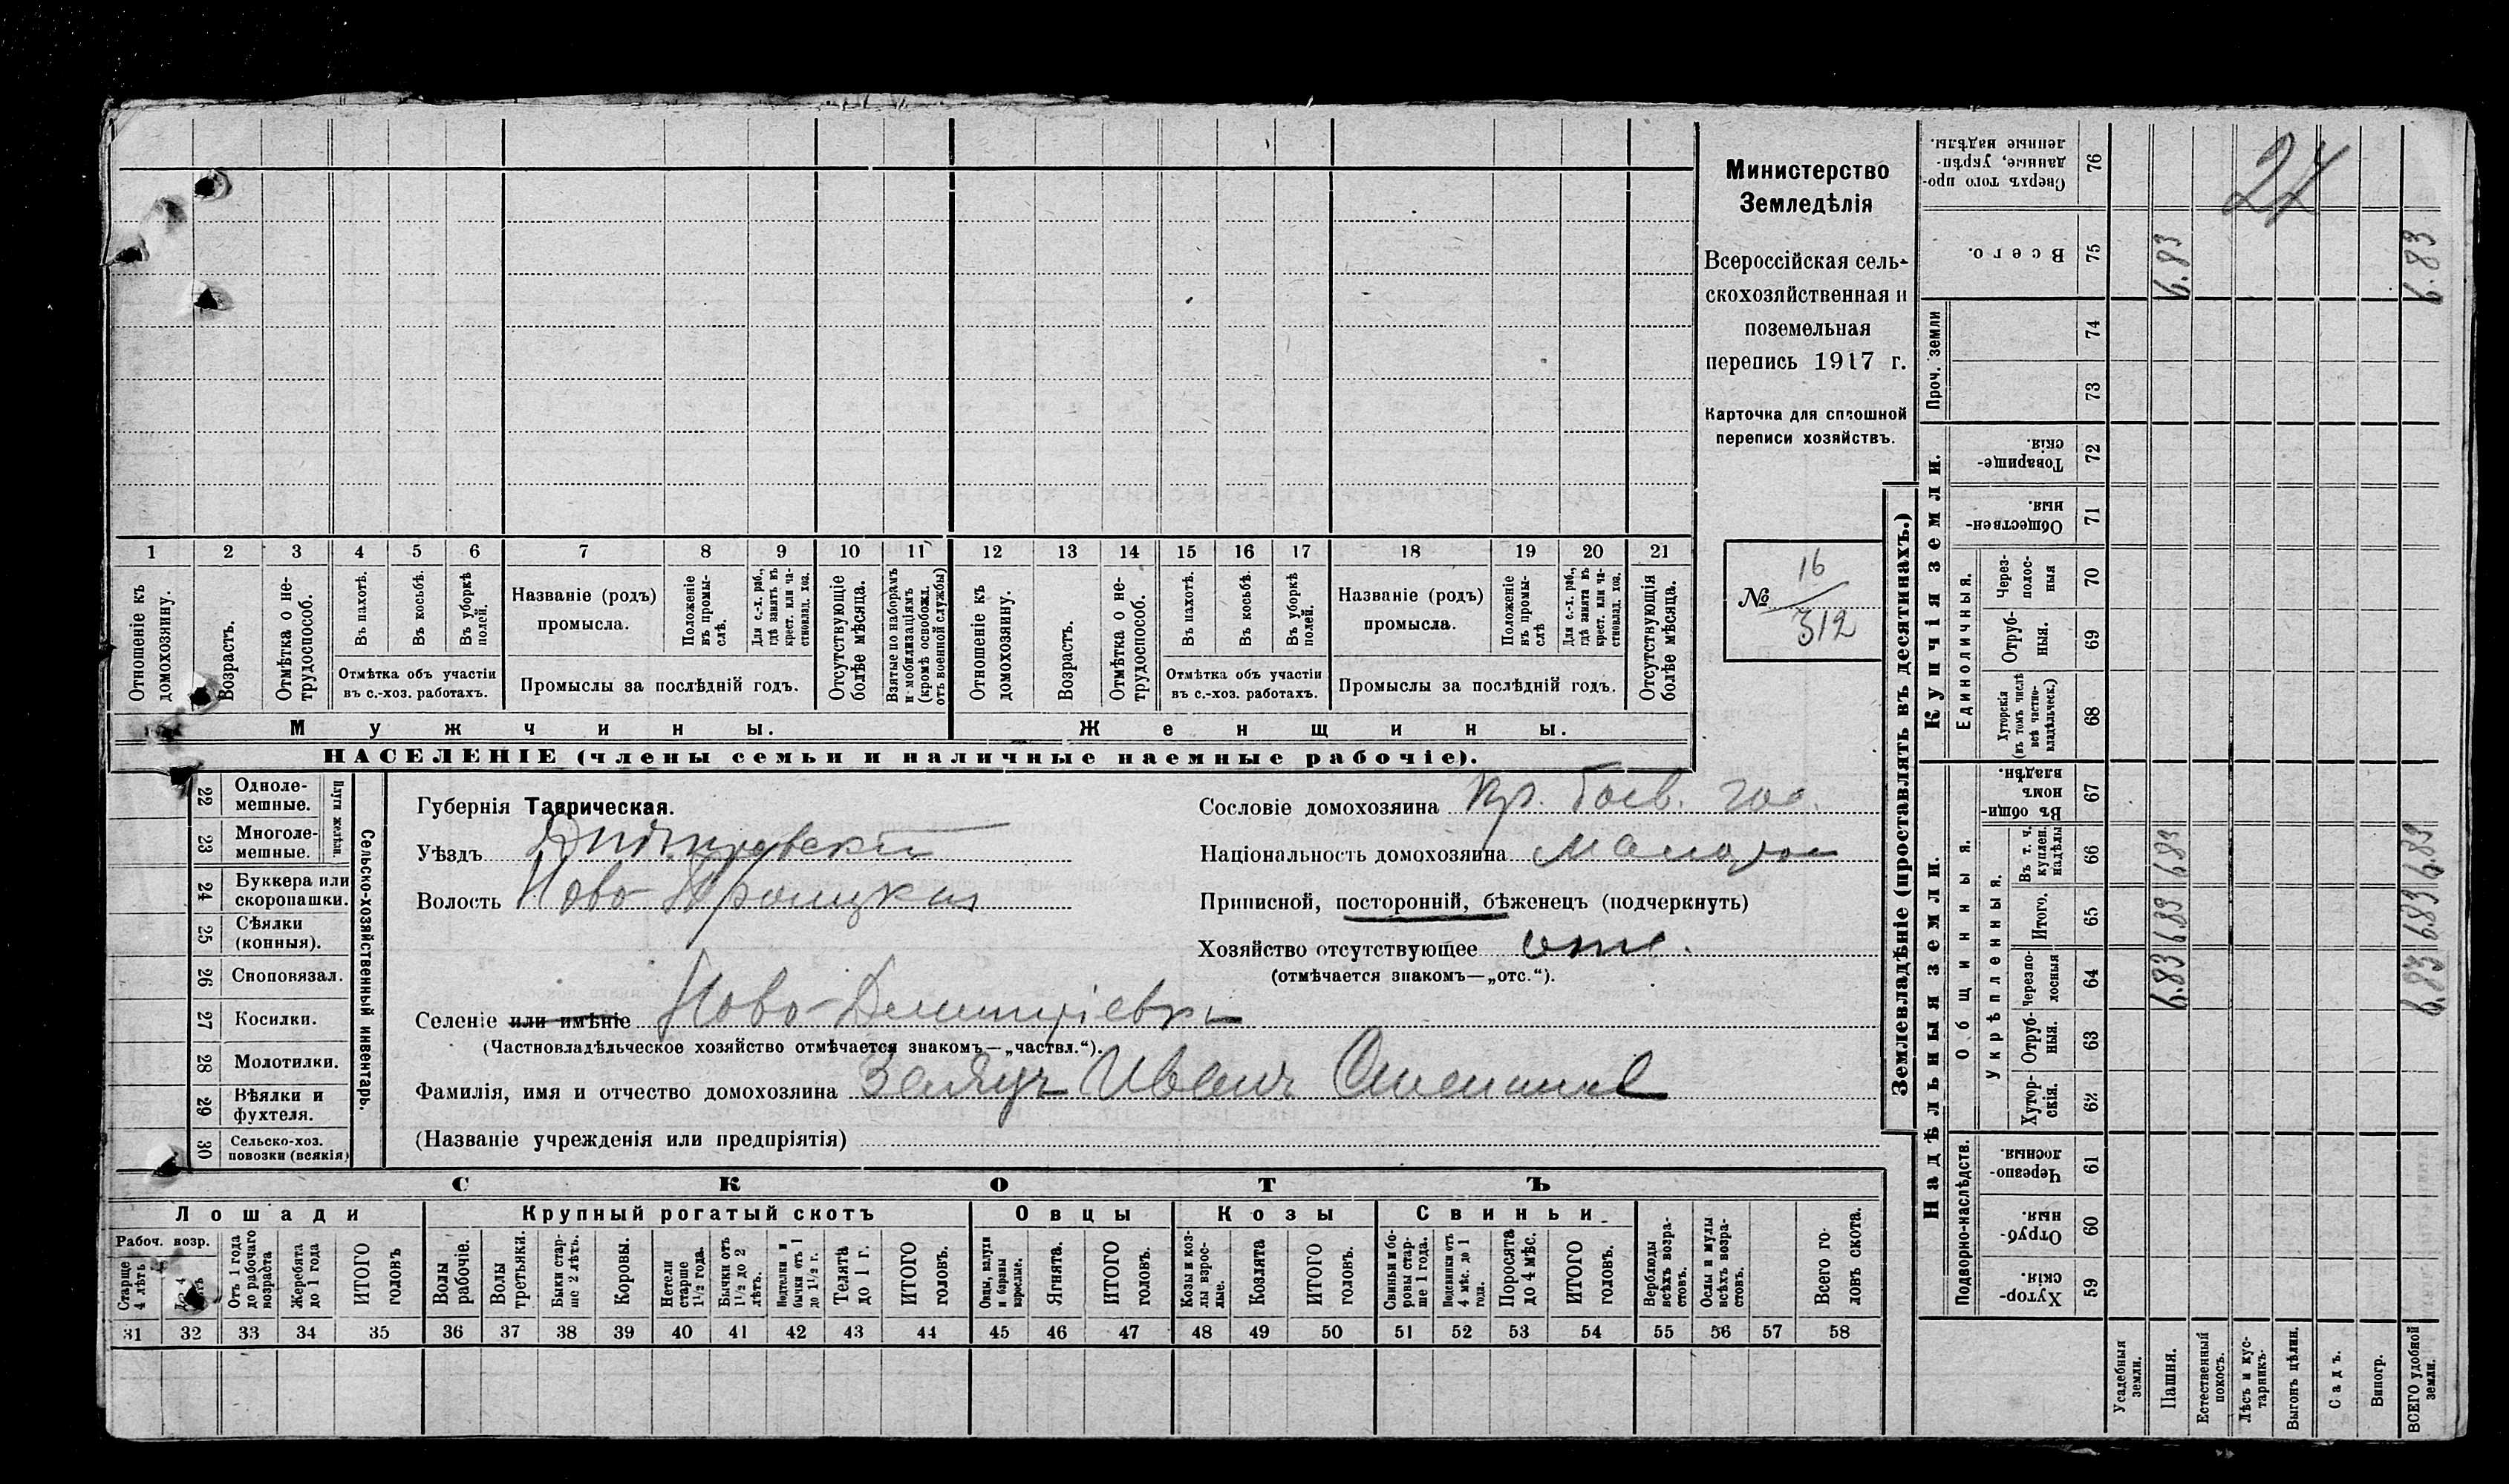 Министерство
Земледѣлія
Всероссійская сель-
скохозяйственная и
поземельная
перепись 1917 г.
Карточка для сплошной
переписи хозяйствъ.
№ 16
312
1 2 3 4 5 6 7 8 9 10 11 12 13 14 15 16 17 18 19 20 21
Отношеніе къ домохозяину.
Возрастъ.
Отмѣтка о не-трудоспособ.
Въ пахотѣ.
Въ косьбѣ.
Въ уборкѣ полей.
Отмѣтка объ участіи
въ с.-хоз. работахъ.
Названіе (родъ)
промысла.
Положеніе въ промы-слѣ.
Для с.-х. раб., гдѣ занятъ въ крест. или ча-стновлад. хоз.
Промыслы за послѣдній годъ.
Отсутствующіе болѣе мѣсяца.
Взятые по наборамъ и мобилизаціямъ (кромѣ освобожд. отъ военной службы)
Отношеніе къ домохозяину.
Возрастъ.
Отмѣтка о не-трудоспособ.
Въ пахотѣ.
Въ косьбѣ.
Въ уборкѣ полей.
Отмѣтка объ участіи
въ с.-хоз. работахъ.
Названіе (родъ)
промысла.
Положеніе въ промы-слѣ
Для с.-х. раб., гдѣ занята въ крест. или ча-стновлад. хоз.
Промыслы за послѣдній годъ.
Отсутствующія болѣе мѣсяца.
Мужчины.
Женщины.
НАСЕЛЕНІЕ (члены семьи и наличные наемные рабочіе).
22 Одноле-мешные.
23 Многоле-мешные.
Плуги желѣзн.
24 Буккера или скоропашки.
25 Сѣялки (конныя).
26 Сноповязал.
27 Косилки.
28 Молотилки.
29 Вѣялки и фухтеля.
30 Сельско-хоз. повозки (всякія)
Сельско-хозяйственный инвентарь.
Губернія Таврическая.
Уѣздъ Днѣпровскій
Волость Ново-Троицкая
Селеніе или имѣніе Ново-Дмитріевка
(Частновладѣльческое хозяйство отмѣчается знакомъ—„частвл.“).
Фамилія, имя и отчество домохозяина Заяцъ Иванъ
(Названіе учрежденія или предпріятія)
Сословіе домохозяина Кр.
Національность домохозяина Малорос
Приписной, посторонній, бѣженецъ (подчеркнуть)
Хозяйство отсутствующее отс.
(отмѣчается знакомъ—„отс.“).
СКОТЪ
Лошади
Крупный рогатый скотъ
Овцы
Козы
Свиньи
Рабоч. возр.
Старше 4 лѣтъ
До 4
Отъ 1 года до рабочаго возраста
Жеребята до 1 года
ИТОГО головъ
Волы рабочіе.
Волы третьяки.
Быки стар-ше 2 лѣтъ.
Коровы.
Нетели старше 1½ года.
Бычки отъ 1½ до 2 лѣтъ.
Подтелки и бычки отъ 1 до 1½ г.
Телята до 1 г.
ИТОГО головъ.
Овцы, валухи и бараны взрослые.
Ягнята.
ИТОГО головъ.
Козы и коз-лы взрос-лые.
Козлята
ИТОГО головъ.
Свиньи и бо-ровы стар-ше 1 года.
Подсвинки отъ 4 мѣс. до 1 года.
Поросята до 4 мѣс.
ИТОГО головъ.
Верблюды всѣхъ возра-стовъ.
Ослы и мулы всѣхъ возра-стовъ.
Всего го-ловъ скота.
31 32 33 34 35 36 37 38 39 40 41 42 43 44 45 46 47 48 49 50 51 52 53 54 55 56 57 58
Землевладѣніе (проставлять въ десятинахъ.)
Купчія земли.
Надѣльныя земли.
Сверхъ того про-данные, укрѣп-ленные надѣлы. 76
Всего. 75
Проч. земли
74
73
Товарище-скія. 72
Обществен-ныя. 71
Единоличныя.
Через-полос-ныя 70
Отруб-ныя. 69
Хуторскія (въ томъ числѣ всѣ частно-владѣльческ.) 68
Общинныя.
Въ общи-номъ владѣн. 67
Укрѣпленныя.
Въ т. ч. куплен. надѣлы 66
Итого. 65
Черезпо-лосныя 64
Отруб-ныя. 63
Хутор-скія. 62
Подворно-наслѣдств.
Черезпо-лосныя. 61
Отруб-ныя. 60
Хутор-скія. 59
Усадебныя земли.
Пашня.
Естественный покосъ.
Лѣсъ и кус-тарникъ.
Выгонъ цѣлин.
Садъ.
Виногр.
ВСЕГО удобной земли.
6.83 6.83 6.83 6.83
6.83 6.83 6.83 6.83